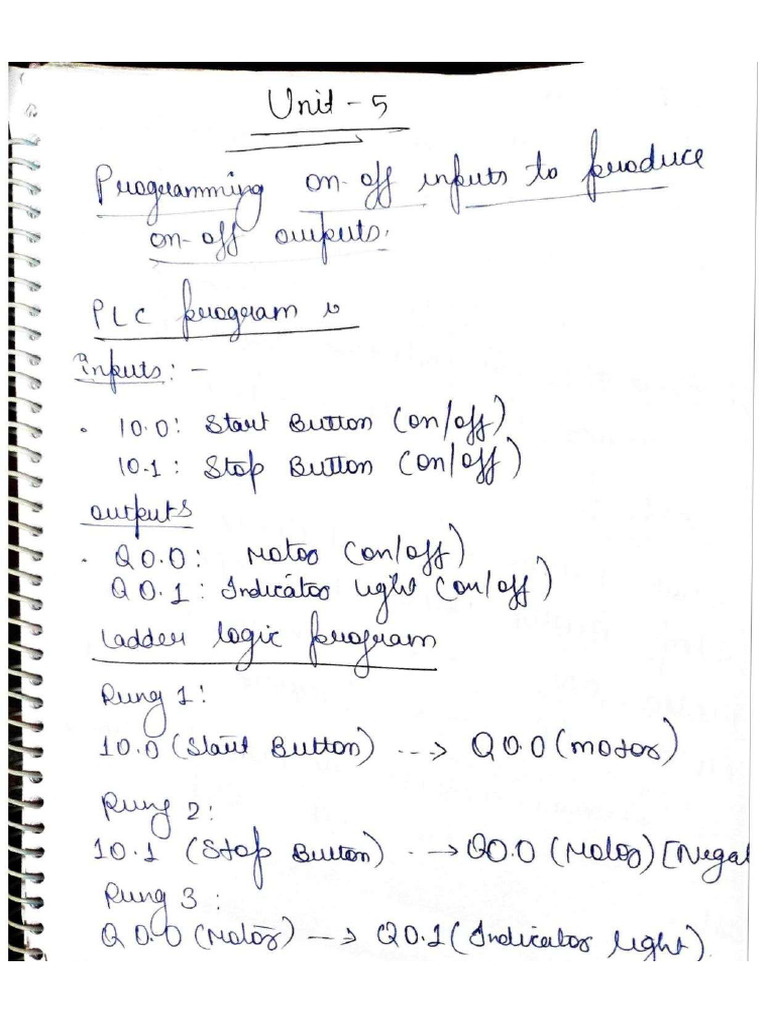 Unit - 5
Programming on-off inputs to produce
on-off outputs.
PLC program
inputs: -
. I0.0: Start Button (on/off)
I0.1: Stop Button (on/off)
outputs
. Q0.0: Motor (on/off)
Q0.1: Indicator light (on/off)
Ladder logic program
Rung 1:
I0.0 (Start Button) --→ Q0.0 (motor)
Rung 2:
I0.1 (Stop Button) --→ Q0.0 (Motor) [Negat
Rung 3:
Q0.0 (Motor) --→ Q0.1 (Indicator light).